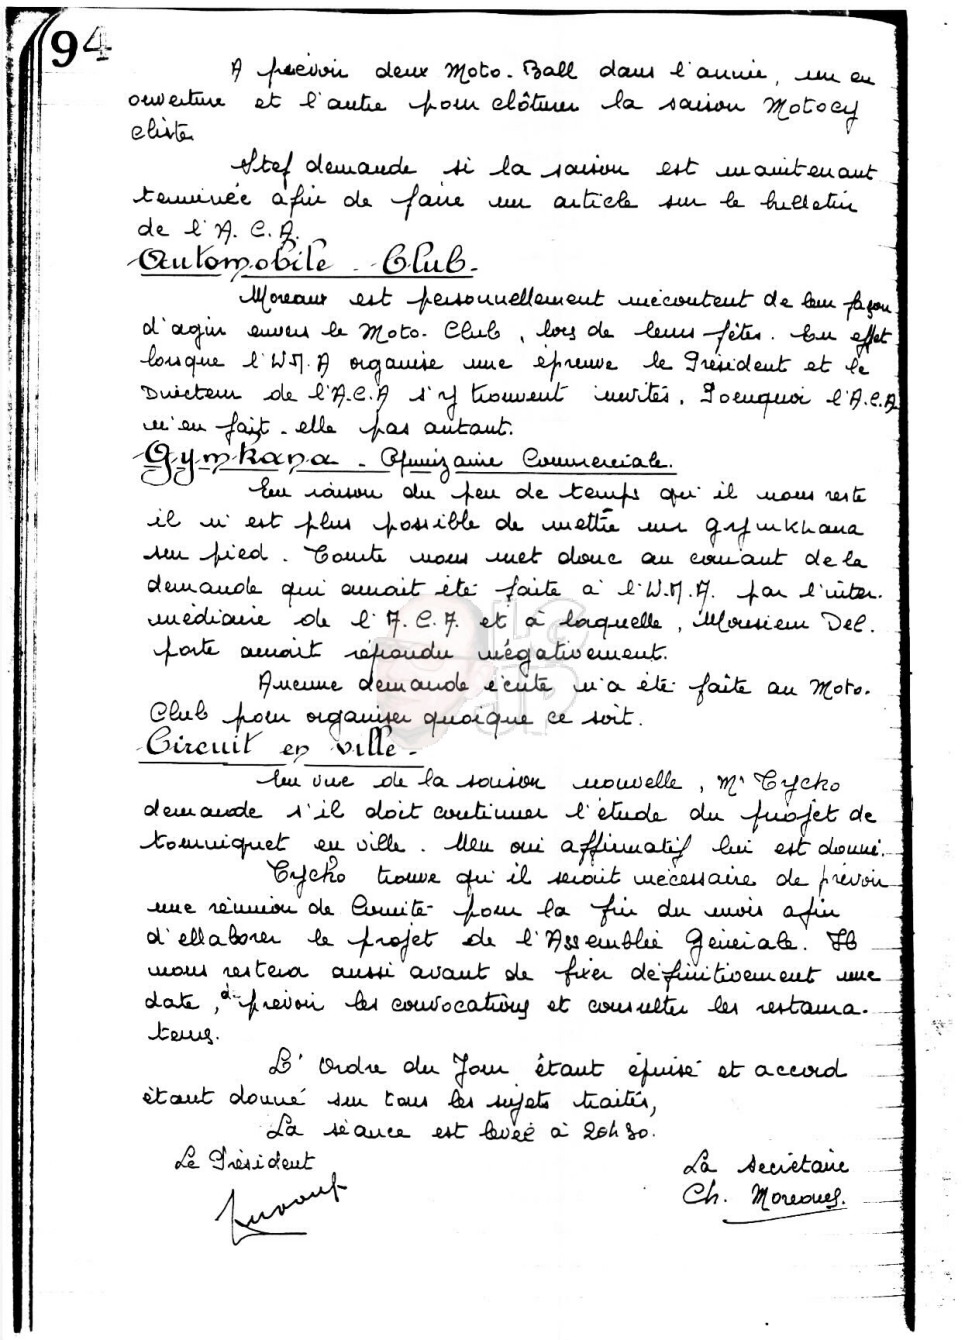 94
A prévoir deux Moto-Ball dans l'année, un en
ouverture et l'autre pour clôturer la saison Motocy
cliste
Stef demande si la saison est maintenant
terminée afin de faire un article sur le bulletin
de l'A.C.A.
Automobile-Club.
Moreaux est personnellement mécontent de leur façon
d'agir envers le Moto-Club, lors de leurs fêtes. En effet
lorsque l'U.M.A organise une épreuve le Président et le
Directeur de l'A.C.A s'y trouvent invités, Pourquoi l'A.C.A
n'en fait-elle pas autant.
Gymkana - Quinzaine Commerciale.
En raison du peu de temps qu'il nous reste
il n'est plus possible de mettre un gymkhana
sur pied. Comte nous met donc au courant de la
demande qui aurait été faite à l'U.M.A. par l'inter-
médiaire de l'A.C.A. et à laquelle, Monsieur Del-
porte aurait répondu négativement.
Aucune demande écrite n'a été faite au Moto-
Club pour organiser quoique ce soit.
Circuit en ville -
En vue de la saison nouvelle, Mr Tycho
demande s'il doit continuer l'étude du projet de
tourniquet en ville. Un oui affirmatif lui est donné.
Tycho trouve qu'il serait nécessaire de prévoir
une réunion de Comité pour la fin du mois afin
d'ellaborer le projet de l'Assemblée Générale. Il
nous restera aussi avant de fixer définitivement une
date, à prévoir les convocations et consulter les restaura-
teurs.
L'Ordre du Jour étant épuisé et accord
étant donné sur tous les sujets traités,
La séance est levée à 20h30.
Le Président
La Secrétaire
Ch. Moreaux.
LC
JP